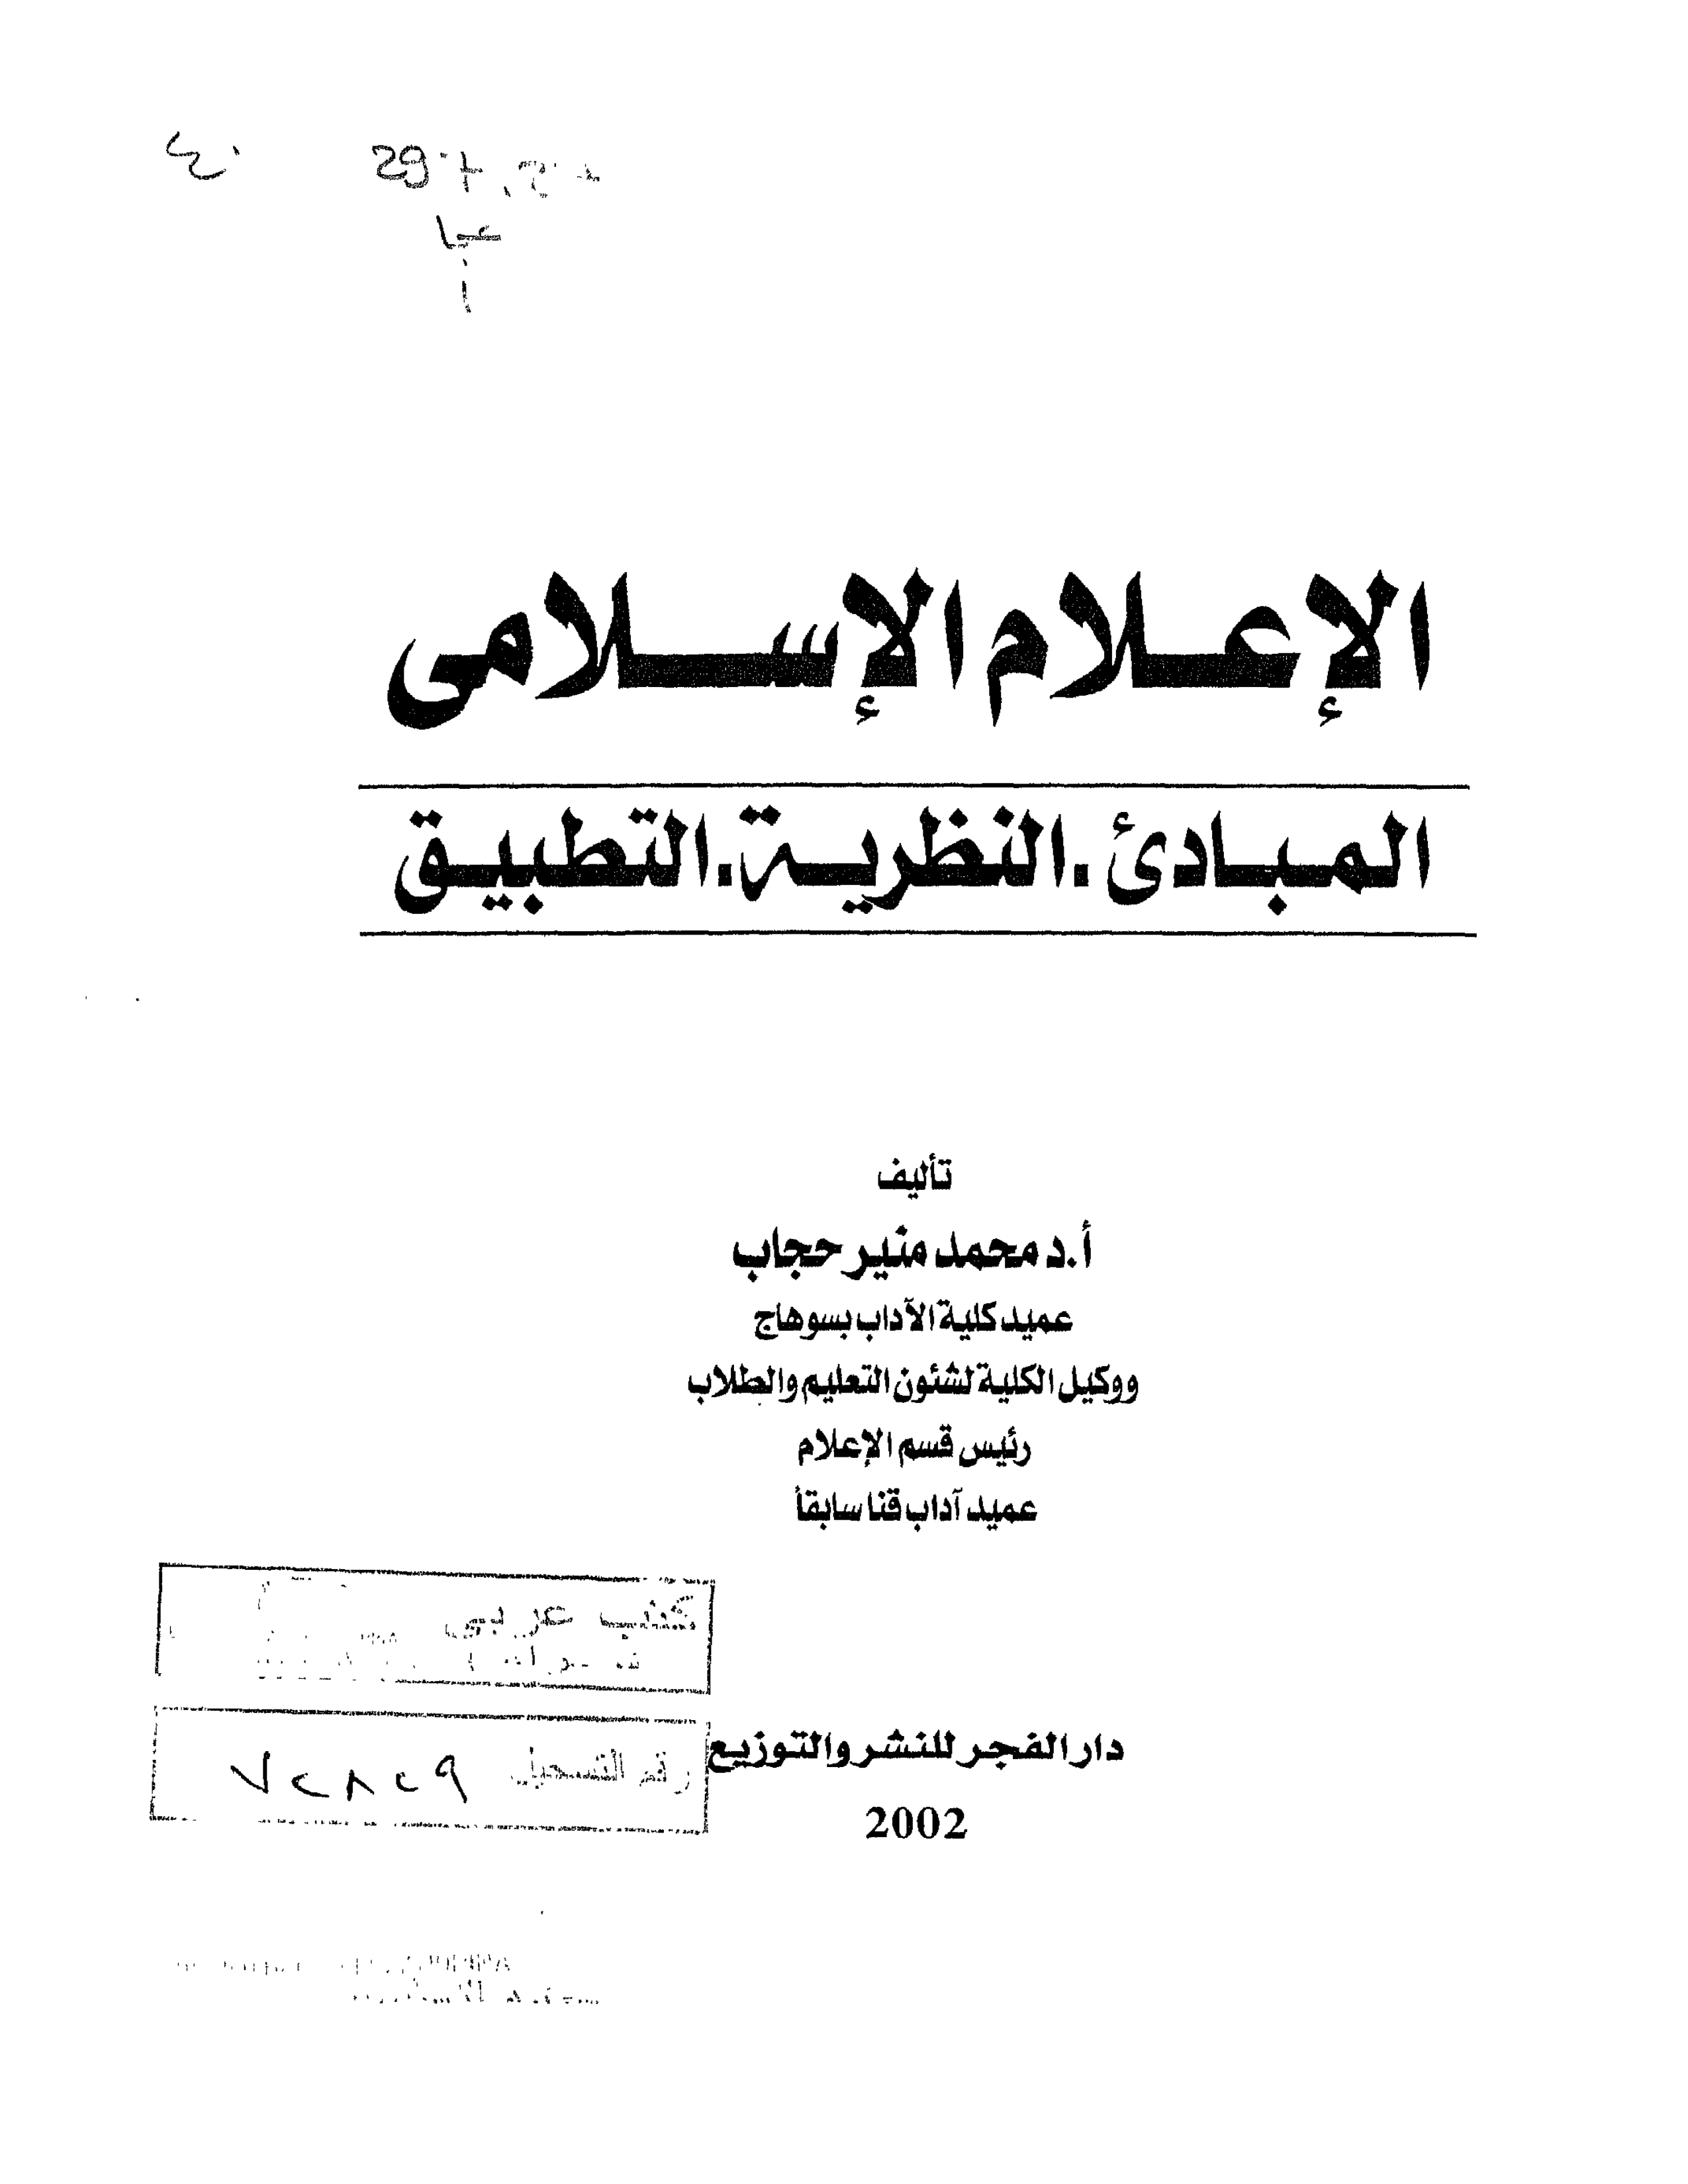 الإعلام الإسلامى
المبادئ.النظرية.التطبيق
تأليف
أ.د محمد منير حجاب
عميد كلية الآداب بسوهاج
ووكيل الكلية لشئون التعليم والطلاب
رئيس قسم الإعلام
عميد آداب قنا سابقاً
كتب عربى
دار الفجر للنشر والتوزيع
رقم التسجيل ٧٢٨٢٩
2002